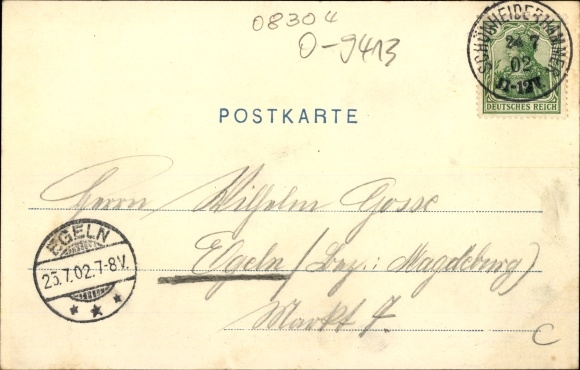 08304
O-9413
SCHÖNHEIDERHAMMER
24 7
02
11-12V.
DEUTSCHES REICH
POSTKARTE
Herrn Wilhelm Gosse
Egeln (Bez: Magdeburg)
Markt 7.
EGELN
25.7.02.7-8V.
C